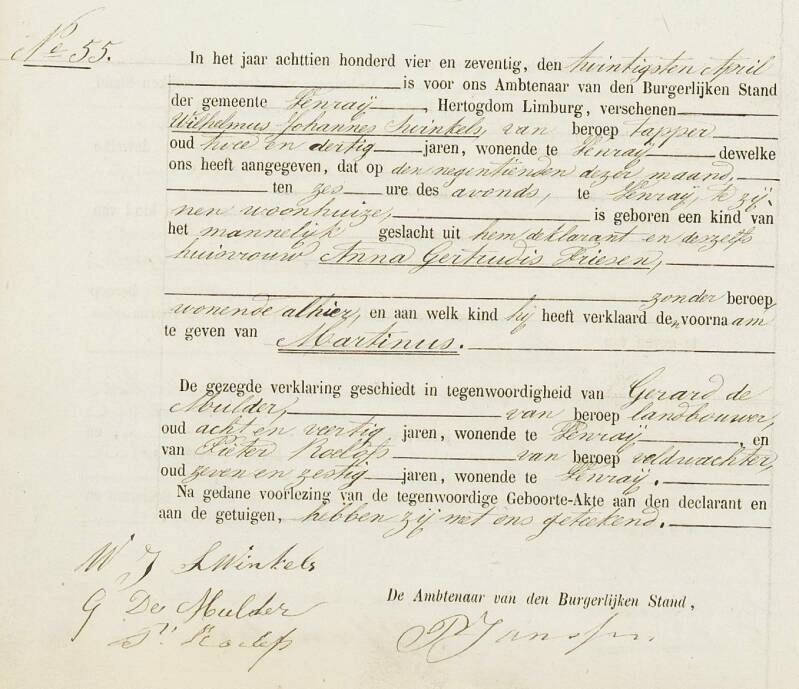 No 55.
In het jaar achttien honderd vier en zeventig, den twintigsten April
is voor ons Ambtenaar van den Burgerlijken Stand
der gemeente Venray, Hertogdom Limburg, verschenen
Wilhelmus Johannes Swinkels, van beroep tapper
oud twee en dertig jaren, wonende te Venray dewelke
ons heeft aangegeven, dat op den negentienden dezer maand,
ten zes ure des avonds, te Venray, te zij-
nen woonhuize, is geboren een kind van
het mannelijk geslacht uit hem deklarant en deszelfs
huisvrouw Anna Gertrudis Friesen,
zonder beroep
wonende alhier, en aan welk kind hij heeft verklaard den voornaam
te geven van Martinus.
De gezegde verklaring geschiedt in tegenwoordigheid van Gerard de
Mulder, van beroep landbouwer,
oud acht en veertig jaren, wonende te Venray, en
van Pieter Roelofs van beroep veldwachter,
oud zeven en zestig jaren, wonende te Venray.
Na gedane voorlezing van de tegenwoordige Geboorte-Akte aan den declarant en
aan de getuigen, hebben zij met ons geteekend.
W J Swinkels
G De Mulder
De Ambtenaar van den Burgerlijken Stand,
P. Roelofs
P. Janssen